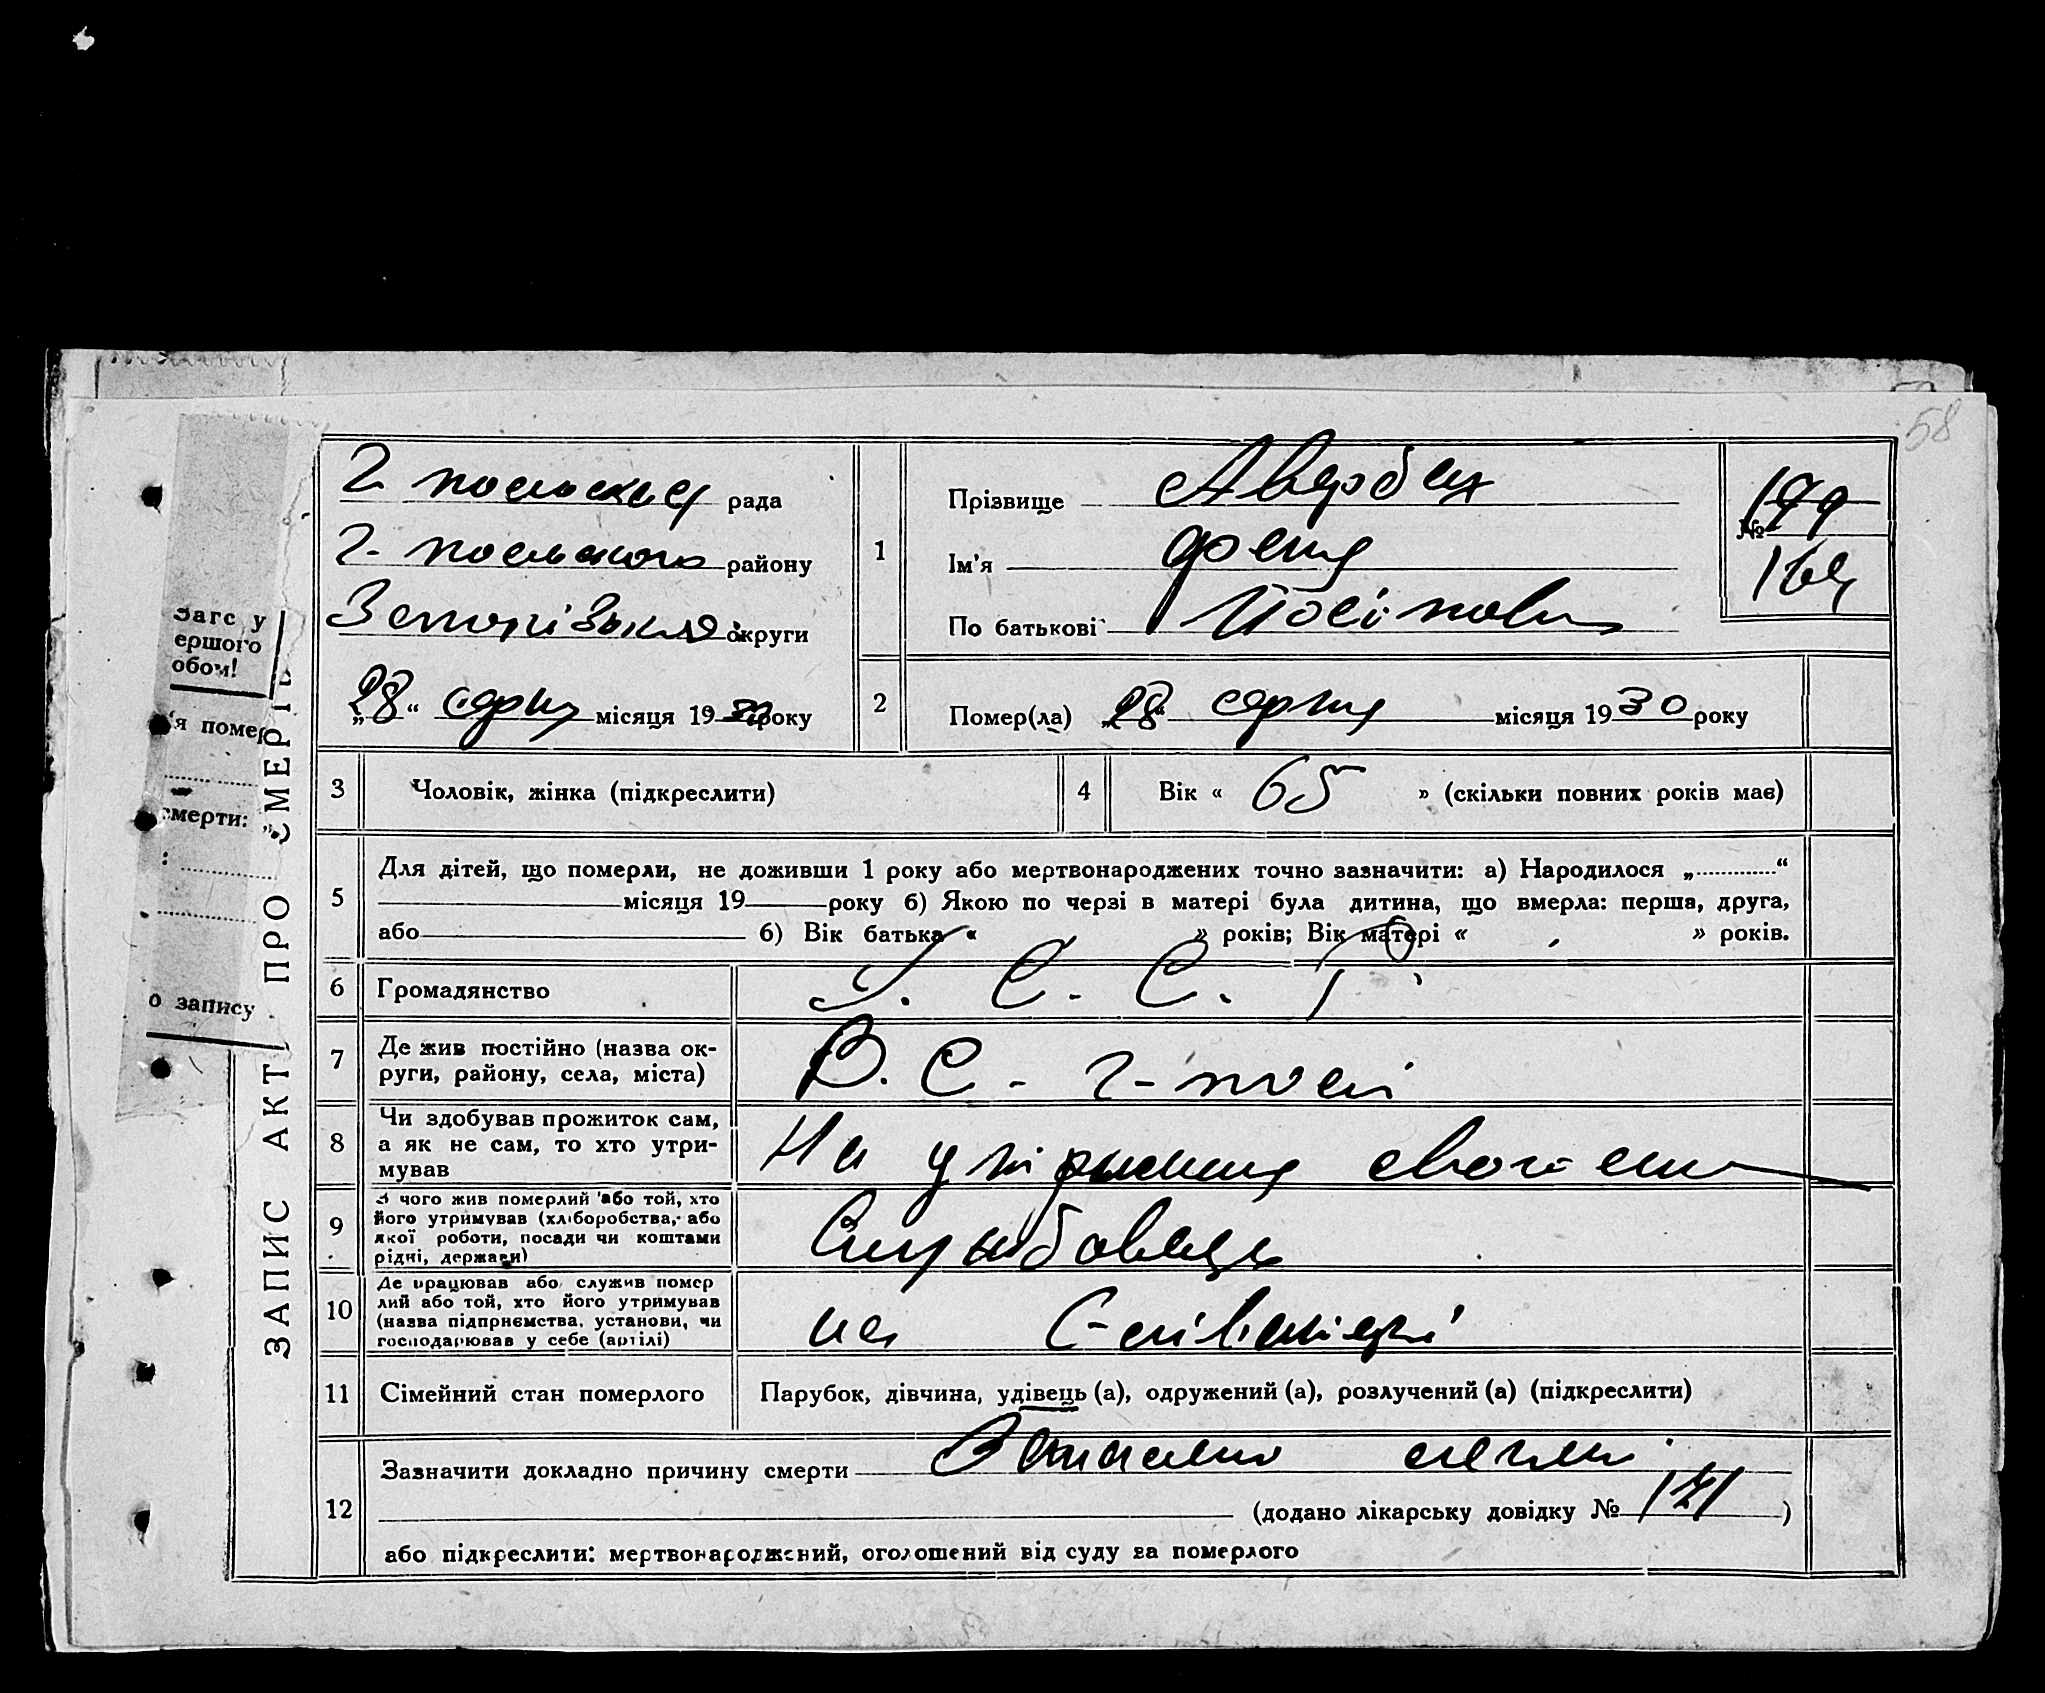 58
Загс у
ершого
обом!
'я помер
смерти: „
:
о запису
ЗАПИС АКТ ПРО СМЕРТЬ
рада
району
округи
„28“ серпня місяця 1930 року
1
Прізвище Авербах
Ім'я Феня
По батькові Йосіповна
№ 199
169
2
Помер(ла) „28“ серпня місяця 1930 року
3 Чоловік, жінка (підкреслити)
4 Вік « 65 » (скільки повних років має)
5
Для дітей, що померли, не доживши 1 року або мертвонароджених точно зазначити: а) Народилося „............“
місяця 19 року б) Якою по черзі в матері була дитина, що вмерла: перша, друга,
або б) Вік батька « » років; Вік матері « » років.
6 Громадянство У. С. С. Р
7
Де жив постійно (назва ок-
руги, району, села, міста)
В. С.
8
Чи здобував прожиток сам,
а як не сам, то хто утри-
мував
На утриманні свого сина
9
З чого жив померлий або той, хто
його утримував (хліборобства, або
якої роботи, посади чи коштами
рідні, держави)
Службовець
10
Де працював або служив помер
лий або той, хто його утримував
(назва підприємства, установи, чи
господарював у себе (артілі)
на
11 Сімейний стан померлого
Парубок, дівчина, удівець (а), одружений (а), розлучений (а) (підкреслити)
12
Зазначити докладно причину смерти
(додано лікарську довідку № 171)
або підкреслити: мертвонароджений, оголошений від суду за померлого